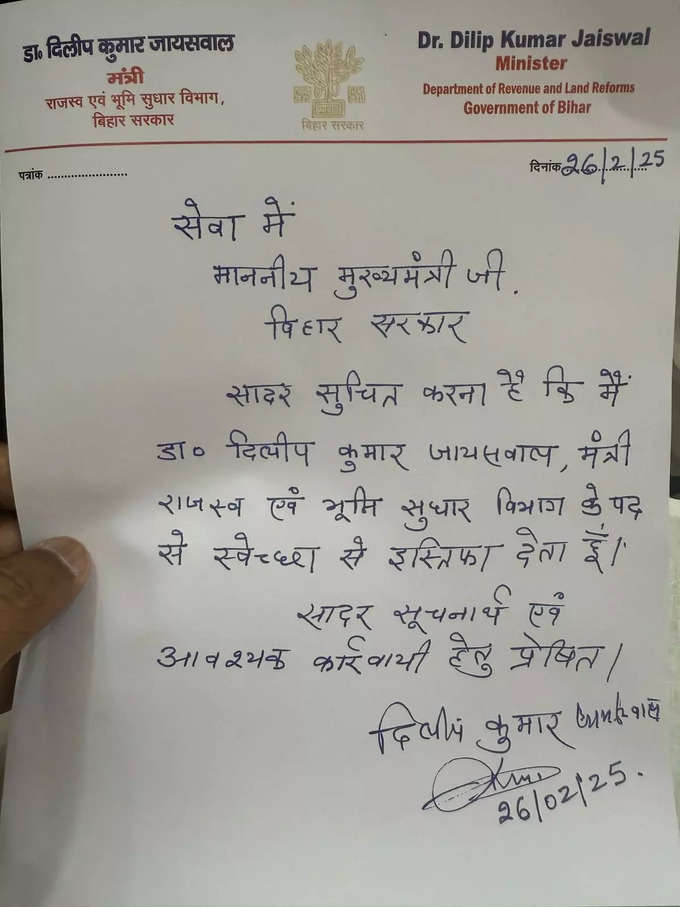 डा॰ दिलीप कुमार जायसवाल
मंत्री
राजस्व एवं भूमि सुधार विभाग,
बिहार सरकार
बिहार सरकार
Dr. Dilip Kumar Jaiswal
Minister
Department of Revenue and Land Reforms
Government of Bihar
पत्रांक ........................
दिनांक 26/2/25
सेवा में
माननीय मुख्यमंत्री जी.
बिहार सरकार
सादर सुचित करना है कि मैं
डा० दिलीप कुमार जायसवाल, मंत्री
राजस्व एवं भूमि सुधार विभाग के पद
से स्वेच्छा से इस्तिफा देता हूँ।
सादर सूचनार्थ एवं
आवश्यक कार्रवायी हेतु प्रेषित।
दिलीप कुमार
26/02/25.